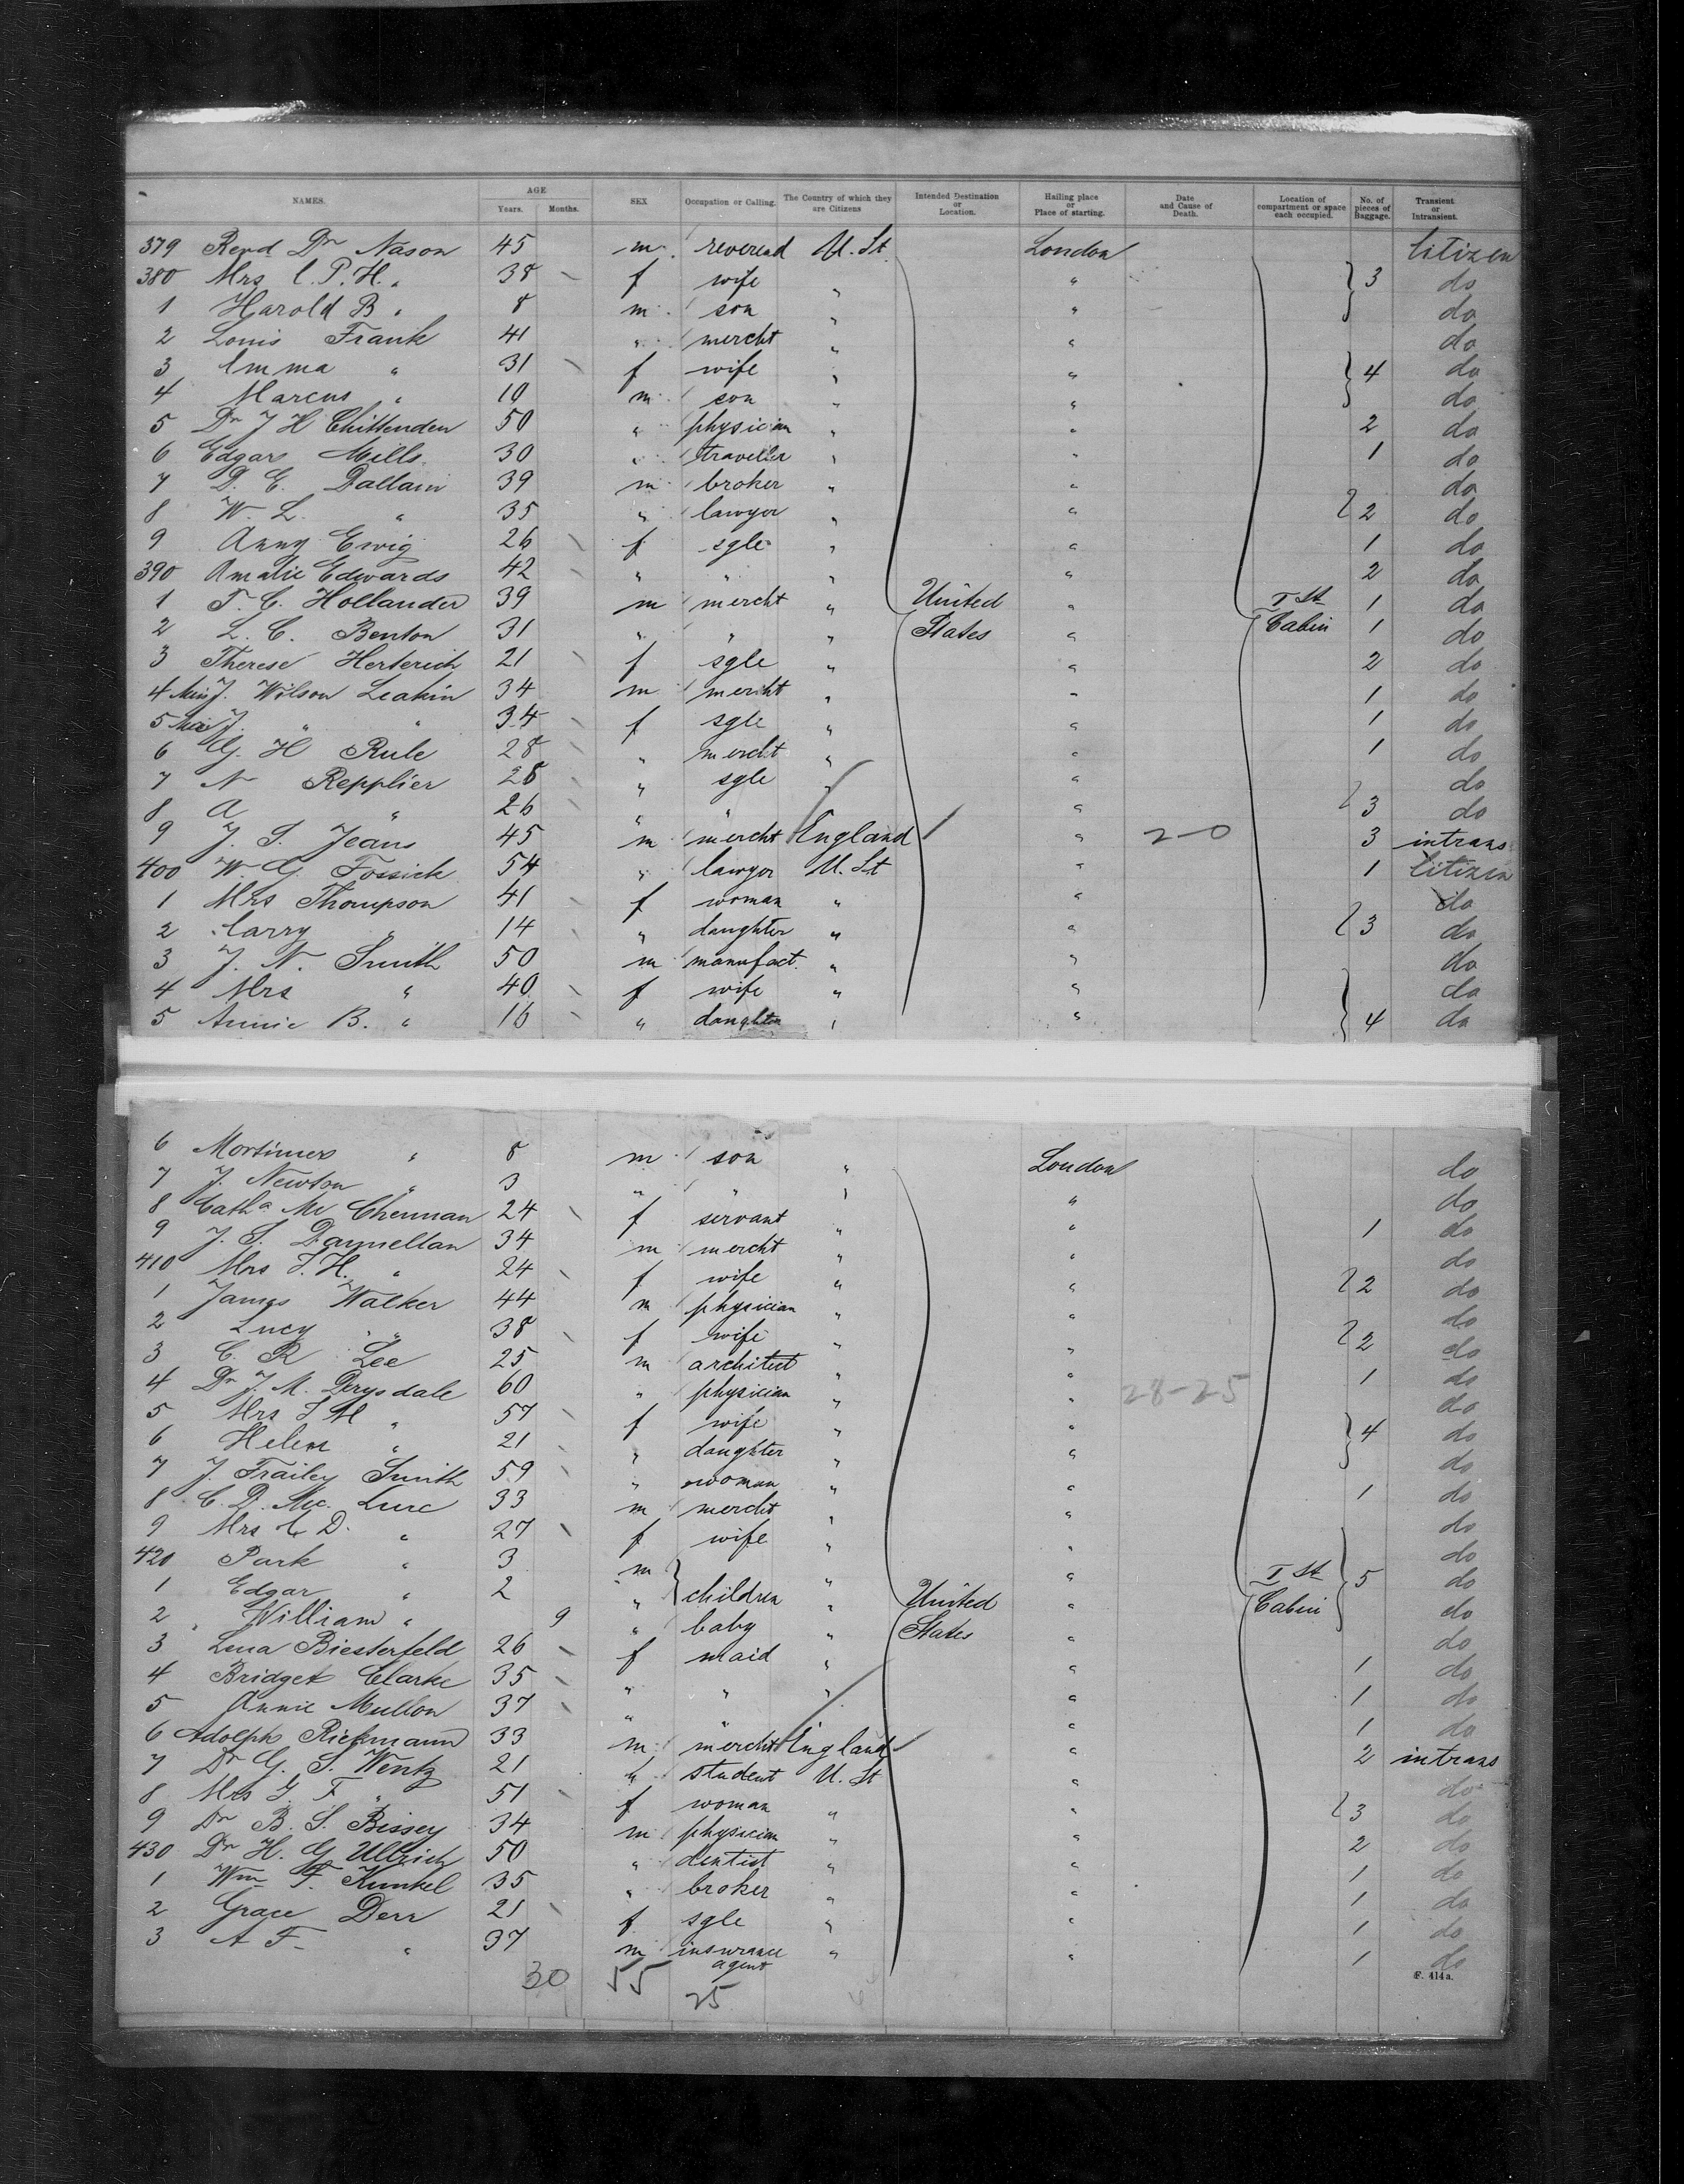 NAMES. AGE Years. Months. SEX Occupation or Calling. The Country of which they are Citizens Intended Destination or Location. Hailing place or Place of starting. Date and Cause of Death. Location of compartment or space each occupied. No. of pieces of Baggage. Transient or Intransient.
379 Revd Dr Nason 45 m reverend U. St. London Citizen
380 Mrs C. P. H. " 38 f wife " " 3 do
1 Harold B " 8 m son " " do
2 Louis Frank 41 " mercht " " do
3 Emma " 31 f wife " " 4 do
4 Marcus " 10 m son " " do
5 Dr J H Chittenden 50 " physician " " 2 do
6 Edgar Mills 30 " traveller " " 1 do
7 D. E. Dallam 39 m broker " " do
8 W L. " 35 " lawyer " " 2 do
9 Anny Ewig 26 f sgle " " 1 do
390 Amalie Edwards 42 " " " " 2 do
1 T. C. Hollander 39 m mercht " United " I St 1 do
2 L. C. Benton 31 " " " States " Cabin 1 do
3 Therese Herterich 21 f sgle " " 2 do
4 J. Wilson Leakin 34 m mercht " " 1 do
5 J. " " 34 f sgle " " 1 do
6 G. H Rule 28 " mercht " " 1 do
7 N Repplier 28 " sgle " " do
8 A " 26 " " " 3 do
9 J. S. Jeans 45 m mercht England " 2-0 3 intrans
400 W. G. Fossick 54 " lawyer U. St " 1 Citizen
1 Mrs Thompson 41 f woman " " do
2 Carry " 14 " daughter " " 3 do
3 J. N. Smith 50 m manufact. " " do
4 Mrs " 40 f wife " " do
5 Annie B. " 16 " daughter " " 4 do
6 Mortimer " 8 m son " London do
7 J. Newton " 3 " " " " do
8 Catha Mc Chennan 24 f servant " " 1 do
9 J. S. Darnellan 34 m mercht " " do
410 Mrs J. H. " 24 f wife " " 2 do
1 James Walker 44 m physician " " do
2 Lucy " 38 f wife " " 2 do
3 C. R Lee 25 m architect " " 1 do
4 Dr J. M. Derysdale 60 " physician " " 28-25 do
5 Mrs J M " 57 f wife " " 4 do
6 Helen " 21 " daughter " " do
7 J. Frailey Smith 59 " woman " " 1 do
8 C. D. Mc. Lure 33 m mercht " " do
9 Mrs C D. " 27 f wife " " do
420 Park " 3 m children " " I St 5 do
1 Edgar " 2 " " United " Cabin do
2 William " 9 " baby " States " do
3 Lena Biesterfeld 26 f maid " " 1 do
4 Bridget Clarke 35 " " " " 1 do
5 Annie Mullon 37 " " " 1 do
6 Adolph Riekmann 33 m mercht England " 2 intrans
7 Dr G. S. Wentz 21 " student U. St " do
8 Mrs G. F " 51 f woman " " 3 do
9 Dr B. S. Bissey 34 m physician " " 2 do
430 Dr H. G Ullrich 50 " dentist " " 1 do
1 Wm F. Kunkel 35 " broker " " 1 do
2 Grace Derr 21 f sgle " " 1 do
3 A F " 37 m insurance agent " " 1 do
30 55 25
F. 414a.